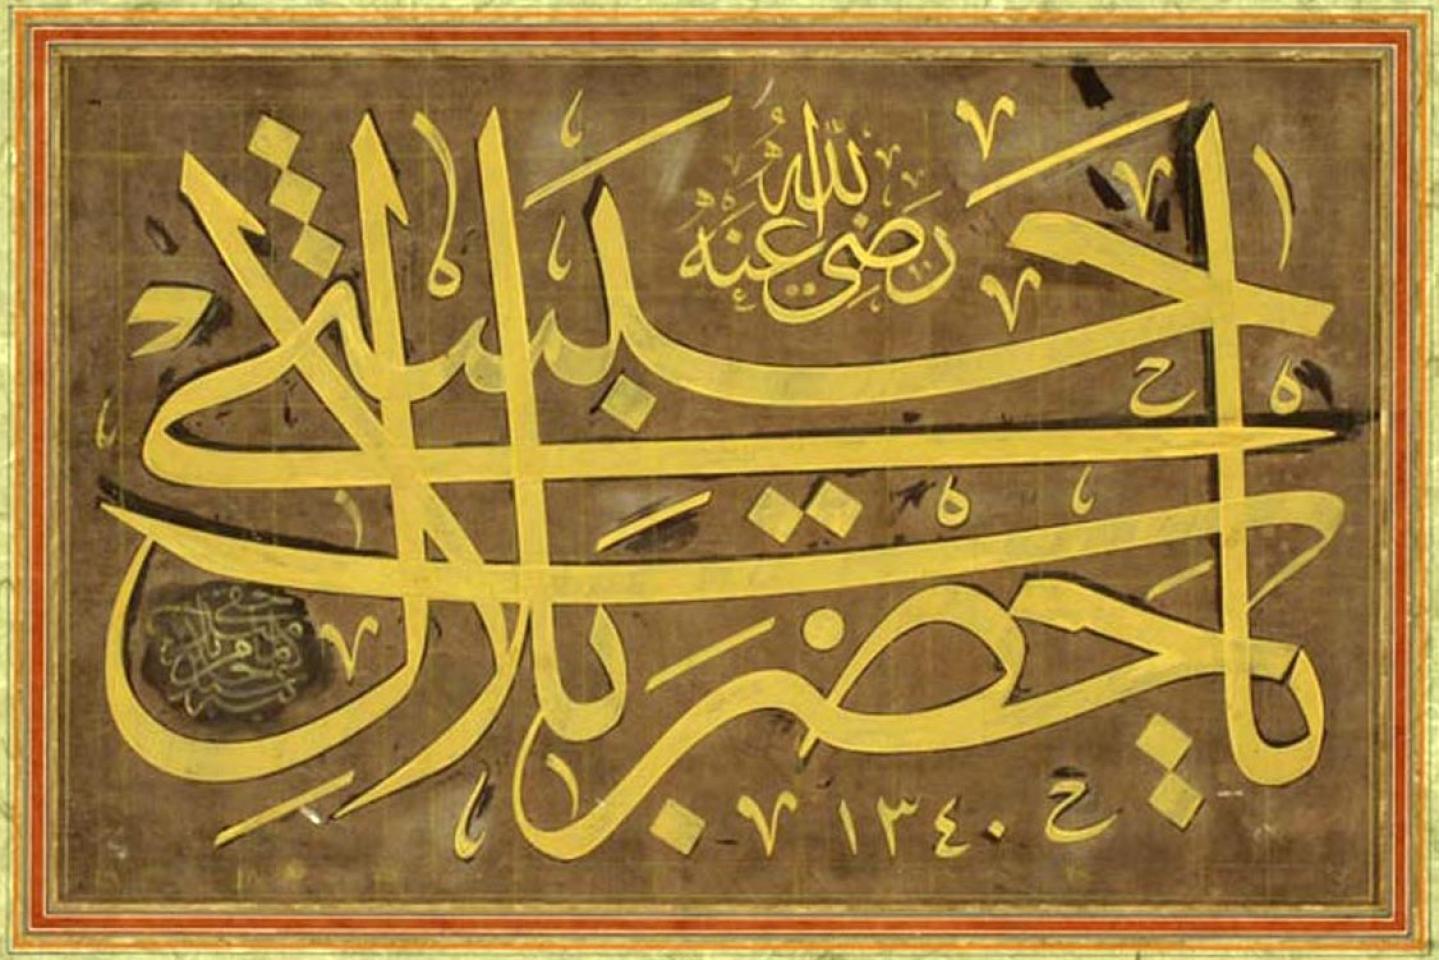 يا حضرت بلال حبشى
رضي الله عنه
١٣٤٠